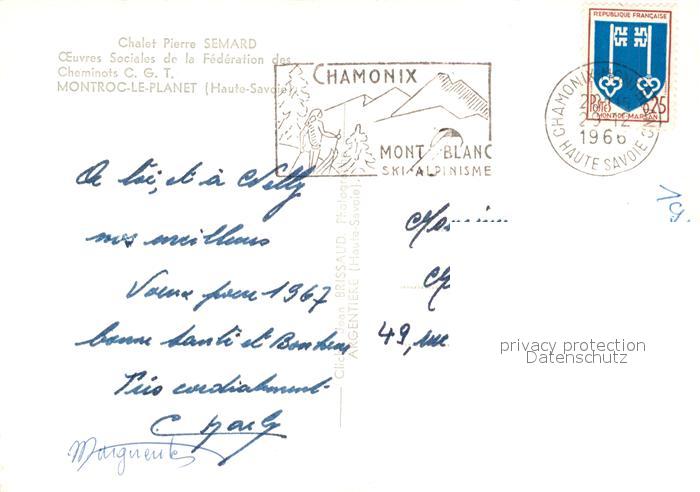 Chalet Pierre SEMARD
Œuvres Sociales de la Fédération des
Cheminots C. G. T.
MONTROC-LE-PLANET (Haute-Savoie)
CHAMONIX
MONT BLANC
SKI-ALPINISME
REPUBLIQUE FRANÇAISE
POSTES
0,25
MONT-DE-MARSAN
CHAMONIX MONT
29-12
1966
HAUTE SAVOIE
A toi, et à Nelly
nos meilleurs
Voeux pour 1967
bonne santé et Bonheur
Très cordialement
Marguerite
Monsieur
49, rue
19
Jean BRISSAUD Photogr
ARGENTIERE (Haute-Savoie)
privacy protection
Datenschutz